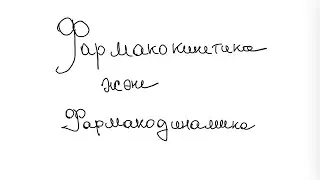 Фармакокинетика
және
Фармакодинамика